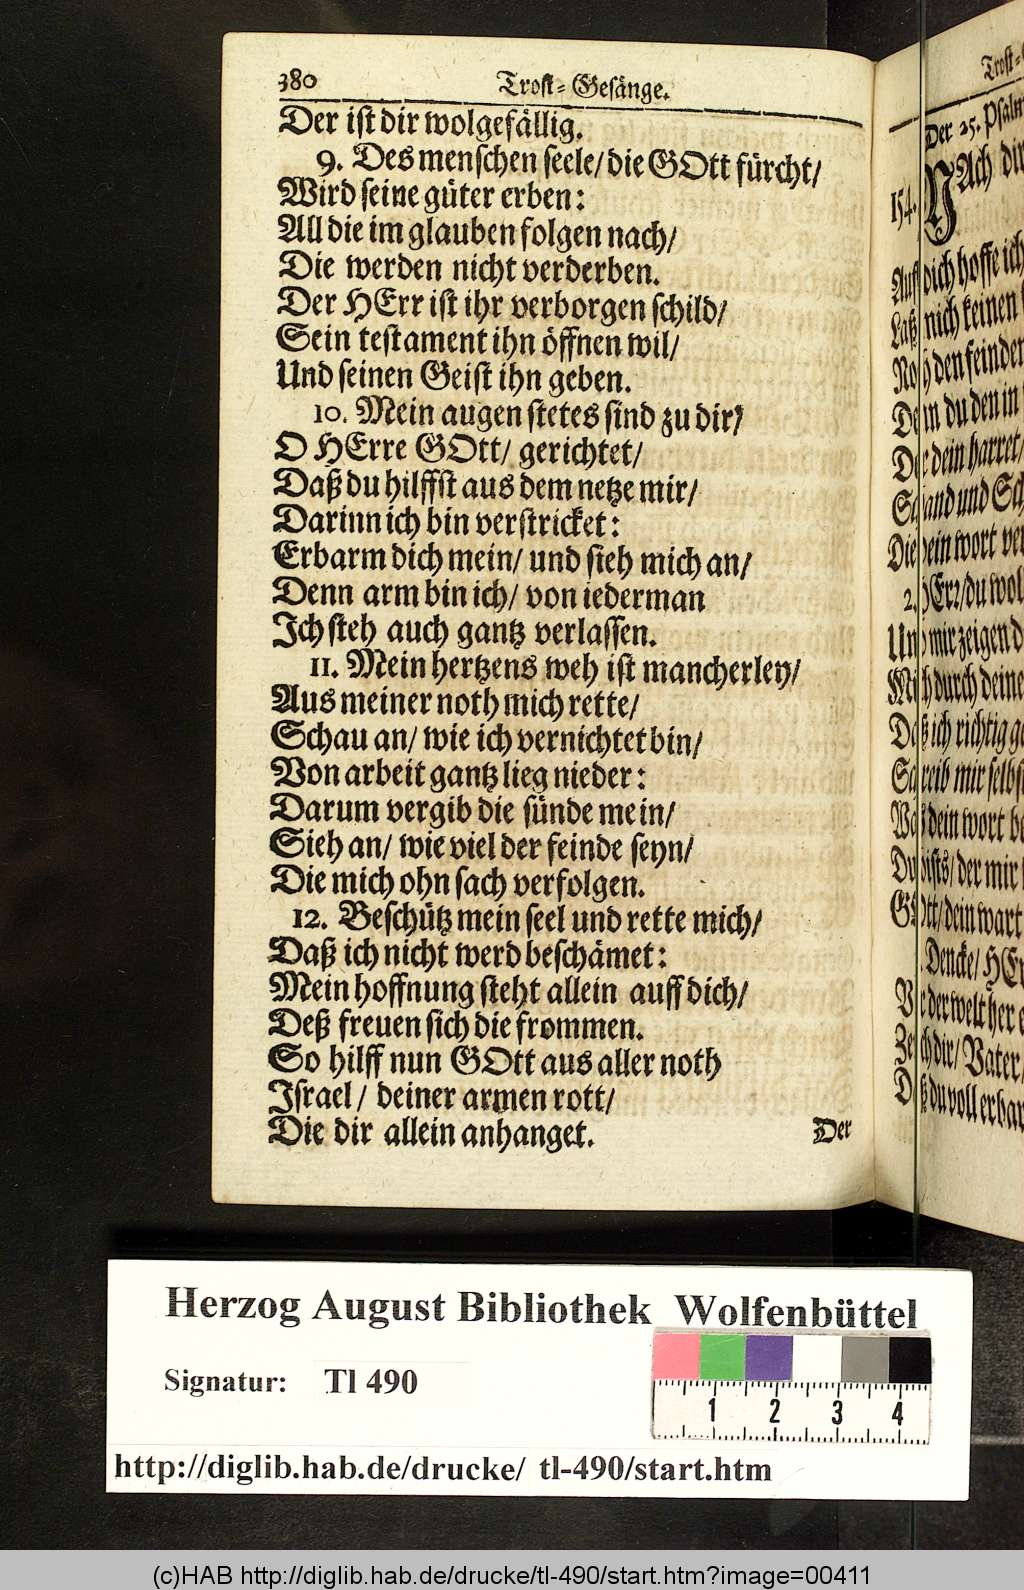 380 Trost-Gesänge.
Der ist dir wolgefällig.
9. Des menschen seele/ die GOtt fürcht/
Wird seine güter erben:
All die im glauben folgen nach/
Die werden nicht verderben.
Der HErr ist ihr verborgen schild/
Sein testament ihn öffnen wil/
Und seinen Geist ihn geben.
10. Mein augen stetes sind zu dir/
O HErre GOtt/ gerichtet/
Daß du hilffst aus dem netze mir/
Darinn ich bin verstricket:
Erbarm dich mein/ und sieh mich an/
Denn arm bin ich/ von iederman
Ich steh auch gantz verlassen.
11. Mein hertzens weh ist mancherley/
Aus meiner noth mich rette/
Schau an/ wie ich vernichtet bin/
Von arbeit gantz lieg nieder:
Darum vergib die sünde mein/
Sieh an/ wie viel der feinde seyn/
Die mich ohn sach verfolgen.
12. Beschütz mein seel und rette mich/
Daß ich nicht werd beschämet:
Mein hoffnung steht allein auff dich/
Deß freuen sich die frommen.
So hilff nun GOtt aus aller noth
Israel/ deiner armen rott/
Die dir allein anhanget.
Der
Trost-
Der 25. Psalm
154. NAch dir
Auf dich hoffe ich
Laß mich keinen
den feinden
Denn du den in
Der dein harret/
Schand und
Die dein wort
2. HErr/ du
Und mir zeigen
Mich durch deine
Daß ich richtig
Schreib mir selbst
dein wort
Du bists/ der mir
GOtt/ dein wart
Dencke/
der welt her
dir/ Vater/
Daß du voll
Herzog August Bibliothek Wolfenbüttel
Signatur: Tl 490
1 2 3 4
http://diglib.hab.de/drucke/ tl-490/start.htm
(c)HAB http://diglib.hab.de/drucke/tl-490/start.htm?image=00411